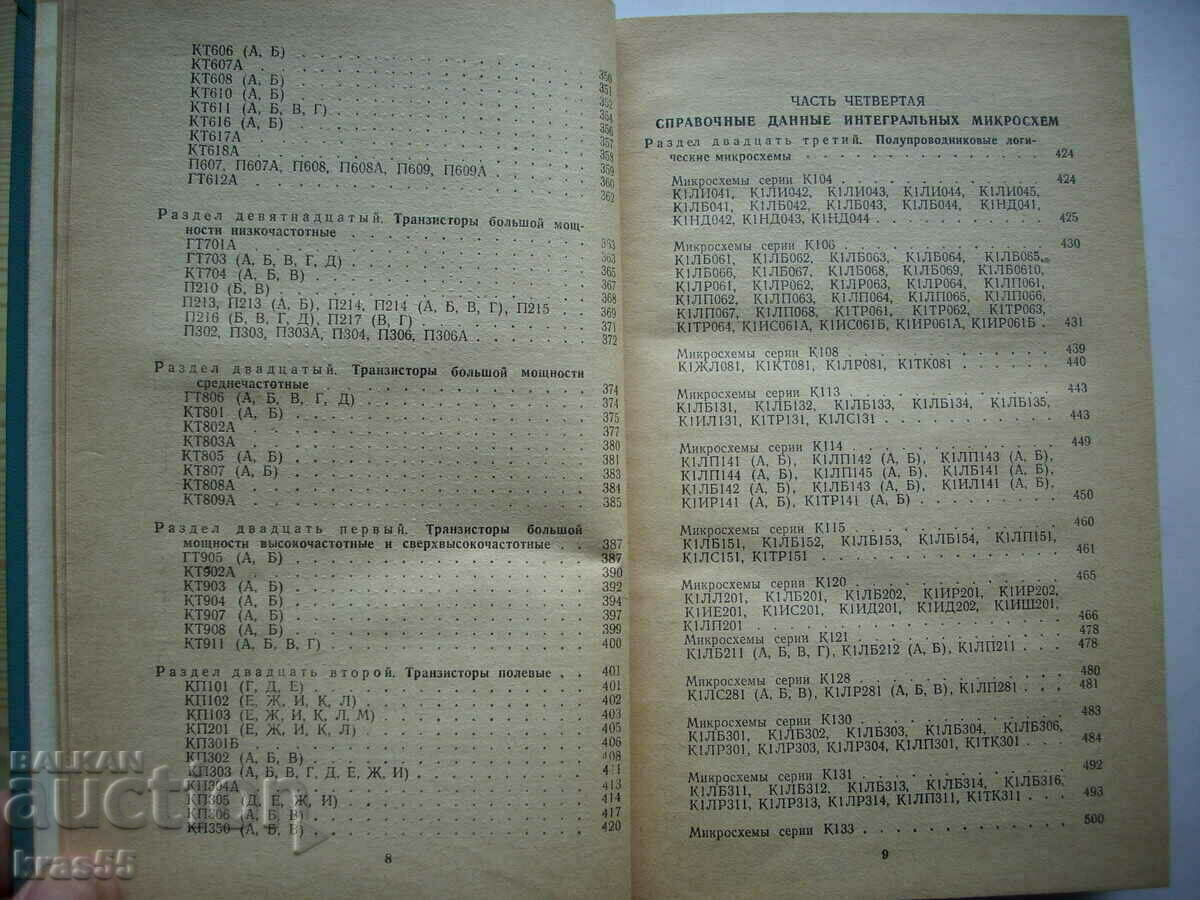 КТ606 (А, Б) . . . 350
КТ607А . . . 351
КТ608 (А, Б) . . . 352
КТ610 (А, Б) . . . 354
КТ611 (А, Б, В, Г) . . . 356
КТ616 (А, Б) . . . 357
КТ617А . . . 358
КТ618А . . . 359
П607, П607А, П608, П608А, П609, П609А . . . 360
ГТ612А . . . 362
Раздел девятнадцатый. Транзисторы большой мощ-
ности низкочастотные . . . 363
ГТ701А . . . 363
ГТ703 (А, Б, В, Г, Д) . . . 365
КТ704 (А, Б, В) . . . 367
П210 (Б, В) . . . 368
П213, П213 (А, Б), П214, П214 (А, Б, В, Г), П215 . . . 369
П216 (Б, В, Г, Д), П217 (В, Г) . . . 371
П302, П303, П303А, П304, П306, П306А . . . 372
Раздел двадцатый. Транзисторы большой мощности
среднечастотные . . . 374
ГТ806 (А, Б, В, Г, Д) . . . 374
КТ801 (А, Б) . . . 375
КТ802А . . . 377
КТ803А . . . 380
КТ805 (А, Б) . . . 381
КТ807 (А, Б) . . . 383
КТ808А . . . 384
КТ809А . . . 385
Раздел двадцать первый. Транзисторы большой
мощности высокочастотные и сверхвысокочастотные . . 387
ГТ905 (А, Б) . . . 387
КТ902А . . . 390
КТ903 (А, Б) . . . 392
КТ904 (А, Б) . . . 394
КТ907 (А, Б) . . . 397
КТ908 (А, Б) . . . 399
КТ911 (А, Б, В, Г) . . . 400
Раздел двадцать второй. Транзисторы полевые . . 401
КП101 (Г, Д, Е) . . . 401
КП102 (Е, Ж, И, К, Л) . . . 402
КП103 (Е, Ж, И, К, Л, М) . . . 403
КП201 (Е, Ж, И, К, Л) . . . 405
КП301Б . . . 406
КП302 (А, Б, В) . . . 408
КП303 (А, Б, В, Г, Д, Е, Ж, И) . . . 411
КП304А . . . 413
КП305 (Д, Е, Ж, И) . . . 414
КП306 (А, Б, В) . . . 417
КП350 (А, Б, В) . . . 420
8
ЧАСТЬ ЧЕТВЕРТАЯ
СПРАВОЧНЫЕ ДАННЫЕ ИНТЕГРАЛЬНЫХ МИКРОСХЕМ
Раздел двадцать третий. Полупроводниковые логи-
ческие микросхемы . . . 424
Микросхемы серии К104 . . . 424
К1ЛИ041, К1ЛИ042, К1ЛИ043, К1ЛИ044, К1ЛИ045,
К1ЛБ041, К1ЛБ042, К1ЛБ043, К1ЛБ044, К1НД041,
К1НД042, К1НД043, К1НД044 . . . 425
Микросхемы серии К106 . . . 430
К1ЛБ061, К1ЛБ062, К1ЛБ063, К1ЛБ064, К1ЛБ065,
К1ЛБ066, К1ЛБ067, К1ЛБ068, К1ЛБ069, К1ЛБ0610,
К1ЛР061, К1ЛР062, К1ЛР063, К1ЛР064, К1ЛП061,
К1ЛП062, К1ЛП063, К1ЛП064, К1ЛП065, К1ЛП066,
К1ЛП067, К1ЛП068, К1ТР061, К1ТР062, К1ТР063,
К1ТР064, К1ИС061А, К1ИС061Б, К1ИР061А, К1ИР061Б . 431
Микросхемы серии К108 . . . 439
К1ЖЛ081, К1КТ081, К1ЛР081, К1ТК081 . . . 440
Микросхемы серии К113 . . . 443
К1ЛБ131, К1ЛБ132, К1ЛБ133, К1ЛБ134, К1ЛБ135,
К1ИЛ131, К1ТР131, К1ЛС131 . . . 443
Микросхемы серии К114 . . . 449
К1ЛП141 (А, Б), К1ЛП142 (А, Б), К1ЛП143 (А, Б),
К1ЛП144 (А, Б), К1ЛП145 (А, Б), К1ЛБ141 (А, Б),
К1ЛБ142 (А, Б), К1ЛБ143 (А, Б), К1ИЛ141 (А, Б),
К1ИР141 (А, Б), К1ТР141 (А, Б) . . . 450
Микросхемы серии К115 . . . 460
К1ЛБ151, К1ЛБ152, К1ЛБ153, К1ЛБ154, К1ЛП151,
К1ЛС151, К1ТР151 . . . 461
Микросхемы серии К120 . . . 465
К1ЛЛ201, К1ЛБ201, К1ЛБ202, К1ИР201, К1ИР202,
К1ИЕ201, К1ИС201, К1ИД201, К1ИД202, К1ИШ201,
К1ЛП201 . . . 466
Микросхемы серии К121 . . . 478
К1ЛБ211 (А, Б, В, Г), К1ЛБ212 (А, Б), К1ЛП211 . . 478
Микросхемы серии К128 . . . 480
К1ЛС281 (А, Б, В), К1ЛР281 (А, Б, В), К1ЛП281 . . . 481
Микросхемы серии К130 . . . 483
К1ЛБ301, К1ЛБ302, К1ЛБ303, К1ЛБ304, К1ЛБ306,
К1ЛР301, К1ЛР303, К1ЛР304, К1ЛП301, К1ТК301 . . . 484
Микросхемы серии К131 . . . 492
К1ЛБ311, К1ЛБ312, К1ЛБ313, К1ЛБ314, К1ЛБ316,
К1ЛР311, К1ЛР313, К1ЛР314, К1ЛП311, К1ТК311 . . . 493
Микросхемы серии К133 . . . 500
9
BALKAN
auction
kras55